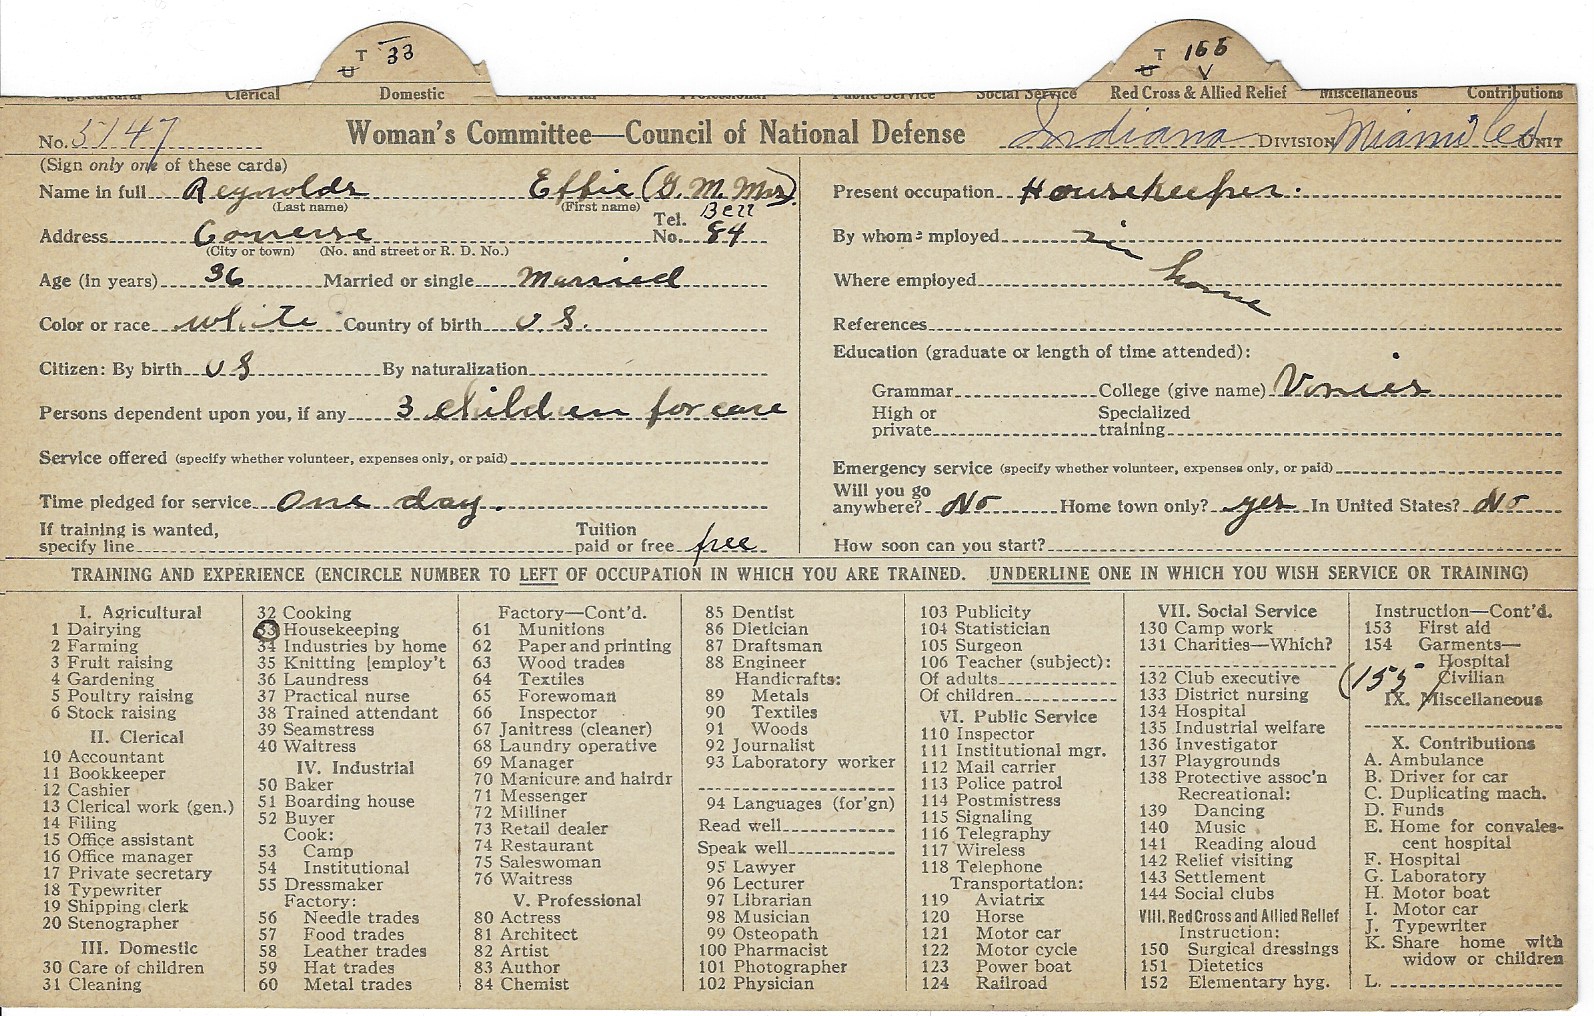 T 33 T 155
U U V
Clerical Domestic Industrial Professional Public Service Social Service Red Cross & Allied Relief Miscellaneous Contributions
No. 5147 Woman's Committee—Council of National Defense Indiana DIVISION Miami Co UNIT
(Sign only one of these cards)
Name in full Reynolds Effie (G. M. Mrs)
(Last name) (First name)
Tel. Bell
Address Converse No. 84
(City or town) (No. and street or R. D. No.)
Age (in years) 36 Married or single Married
Color or race white Country of birth U S.
Citizen: By birth U S By naturalization
Persons dependent upon you, if any 3 children for care
Service offered (specify whether volunteer, expenses only, or paid)
Time pledged for service One day.
If training is wanted, Tuition
specify line paid or free free
Present occupation Housekeeper.
By whom employed in
Where employed home
References
Education (graduate or length of time attended):
Grammar College (give name)
High or Specialized
private training
Emergency service (specify whether volunteer, expenses only, or paid)
Will you go
anywhere? No Home town only? yes In United States? No
How soon can you start?
TRAINING AND EXPERIENCE (ENCIRCLE NUMBER TO LEFT OF OCCUPATION IN WHICH YOU ARE TRAINED. UNDERLINE ONE IN WHICH YOU WISH SERVICE OR TRAINING)
I. Agricultural
1 Dairying
2 Farming
3 Fruit raising
4 Gardening
5 Poultry raising
6 Stock raising
II. Clerical
10 Accountant
11 Bookkeeper
12 Cashier
13 Clerical work (gen.)
14 Filing
15 Office assistant
16 Office manager
17 Private secretary
18 Typewriter
19 Shipping clerk
20 Stenographer
III. Domestic
30 Care of children
31 Cleaning
32 Cooking
33 Housekeeping
34 Industries by home
35 Knitting [employ't
36 Laundress
37 Practical nurse
38 Trained attendant
39 Seamstress
40 Waitress
IV. Industrial
50 Baker
51 Boarding house
52 Buyer
Cook:
53 Camp
54 Institutional
55 Dressmaker
Factory:
56 Needle trades
57 Food trades
58 Leather trades
59 Hat trades
60 Metal trades
Factory—Cont'd.
61 Munitions
62 Paper and printing
63 Wood trades
64 Textiles
65 Forewoman
66 Inspector
67 Janitress (cleaner)
68 Laundry operative
69 Manager
70 Manicure and hairdr
71 Messenger
72 Milliner
73 Retail dealer
74 Restaurant
75 Saleswoman
76 Waitress
V. Professional
80 Actress
81 Architect
82 Artist
83 Author
84 Chemist
85 Dentist
86 Dietician
87 Draftsman
88 Engineer
Handicrafts:
89 Metals
90 Textiles
91 Woods
92 Journalist
93 Laboratory worker
94 Languages (for'gn)
Read well
Speak well
95 Lawyer
96 Lecturer
97 Librarian
98 Musician
99 Osteopath
100 Pharmacist
101 Photographer
102 Physician
103 Publicity
104 Statistician
105 Surgeon
106 Teacher (subject):
Of adults
Of children
VI. Public Service
110 Inspector
111 Institutional mgr.
112 Mail carrier
113 Police patrol
114 Postmistress
115 Signaling
116 Telegraphy
117 Wireless
118 Telephone
Transportation:
119 Aviatrix
120 Horse
121 Motor car
122 Motor cycle
123 Power boat
124 Railroad
VII. Social Service
130 Camp work
131 Charities—Which?
132 Club executive
133 District nursing
134 Hospital
135 Industrial welfare
136 Investigator
137 Playgrounds
138 Protective assoc'n
Recreational:
139 Dancing
140 Music
141 Reading aloud
142 Relief visiting
143 Settlement
144 Social clubs
VIII. Red Cross and Allied Relief
Instruction:
150 Surgical dressings
151 Dietetics
152 Elementary hyg.
Instruction—Cont'd.
153 First aid
154 Garments—
Hospital
(155 Civilian
IX. Miscellaneous
X. Contributions
A. Ambulance
B. Driver for car
C. Duplicating mach.
D. Funds
E. Home for convales-
cent hospital
F. Hospital
G. Laboratory
H. Motor boat
I. Motor car
J. Typewriter
K. Share home with
widow or children
L.